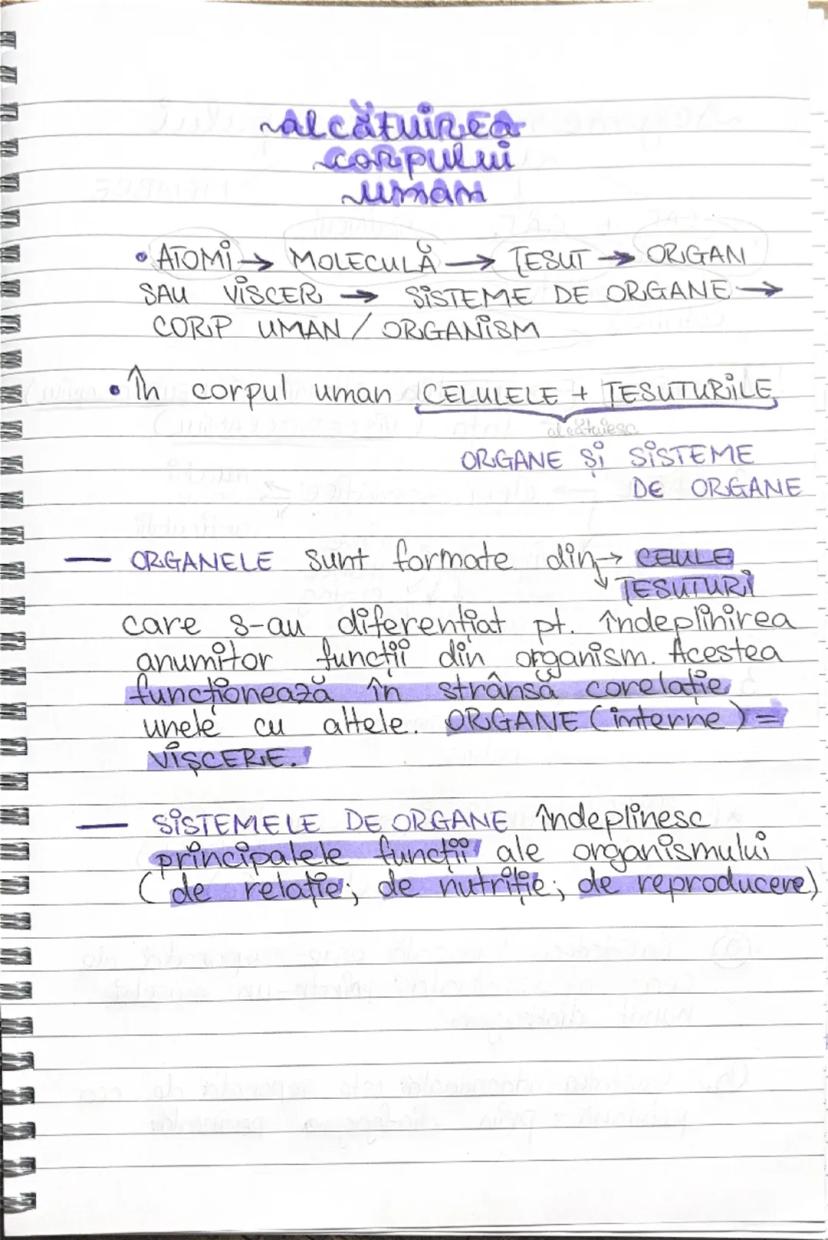 alcătuirea
corpului
uman
• ATOMI → MOLECULĂ → ȚESUT → ORGAN
SAU VISCER → SISTEME DE ORGANE →
CORP UMAN / ORGANISM
• În corpul uman CELULELE + ȚESUTURILE
alcătuiesc
ORGANE ȘI SISTEME
DE ORGANE
— ORGANELE sunt formate din → CELULE
↳ ȚESUTURI
care s-au diferențiat pt. îndeplinirea
anumitor funcții din organism. Acestea
funcționează în strânsă corelație
unele cu altele. ORGANE (interne) =
VISCERE.
— SISTEMELE DE ORGANE îndeplinesc
principalele funcții ale organismului
(de relație; de nutriție; de reproducere)